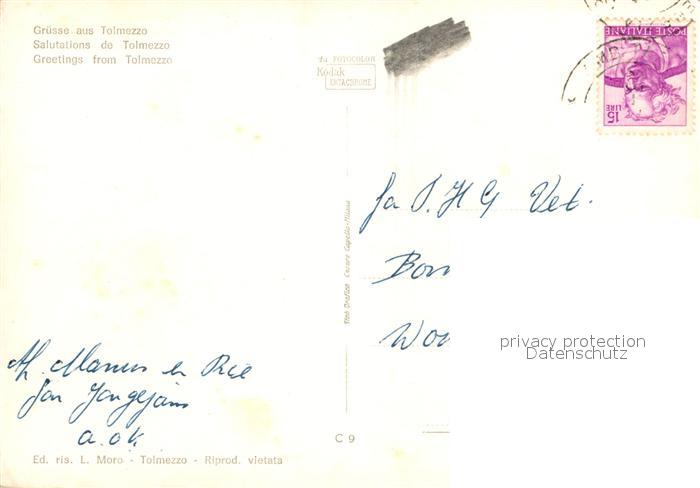 Grüsse aus Tolmezzo
Salutations de Tolmezzo
Greetings from Tolmezzo
da FOTOCOLOR
Kodak
EKTACHROME
POSTE ITALIANE
15 LIRE
fa J. H G Vet.
Bon
Wou
privacy protection
Datenschutz
Stab. Grafico Cesare Capello - Milano
M. Manus en Rie
Jan Jongejans
a.o.k.
C 9
Ed. ris. L. Moro - Tolmezzo - Riprod. vietata